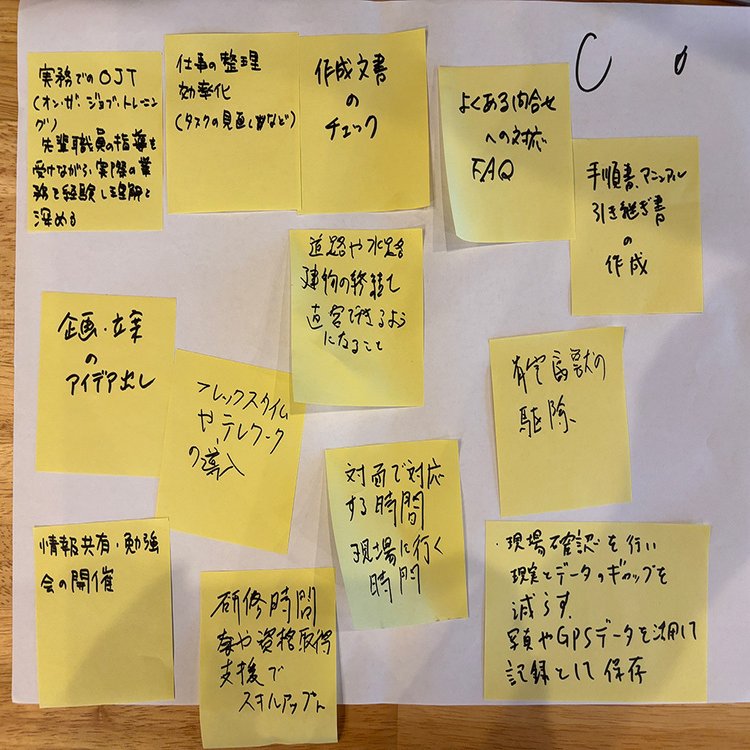 実務でのOJT
(オン・ザ・ジョブ・トレーニ
ング)
先輩職員の指導を
受けながら、実際の業
務を経験し理解を
深める
仕事の整理
効率化
(タスクの見直しなど)
作成文書
の
チェック
よくある問合せ
への対応
FAQ
手順書、マニュアル
引き継ぎ書
の
作成
道路や水路
建物の修繕を
直営でできるよう
になること
企画・立案
の
アイデア出し
フレックスタイム
や、テレワーク
の導入
有害鳥獣の
駆除
対面で対応
する時間
現場に行く
時間
情報共有・勉強
会の開催
研修時間
や資格取得
支援で
スキルアップ
・現場確認を行い
現実とデータのギャップを
減らす。
写真やGPSデータを活用して
記録として保存